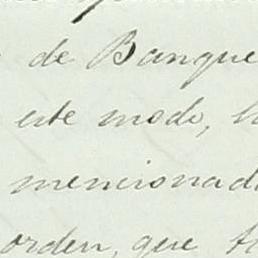 de Banque
este modo, h
mencionad
orden, que t